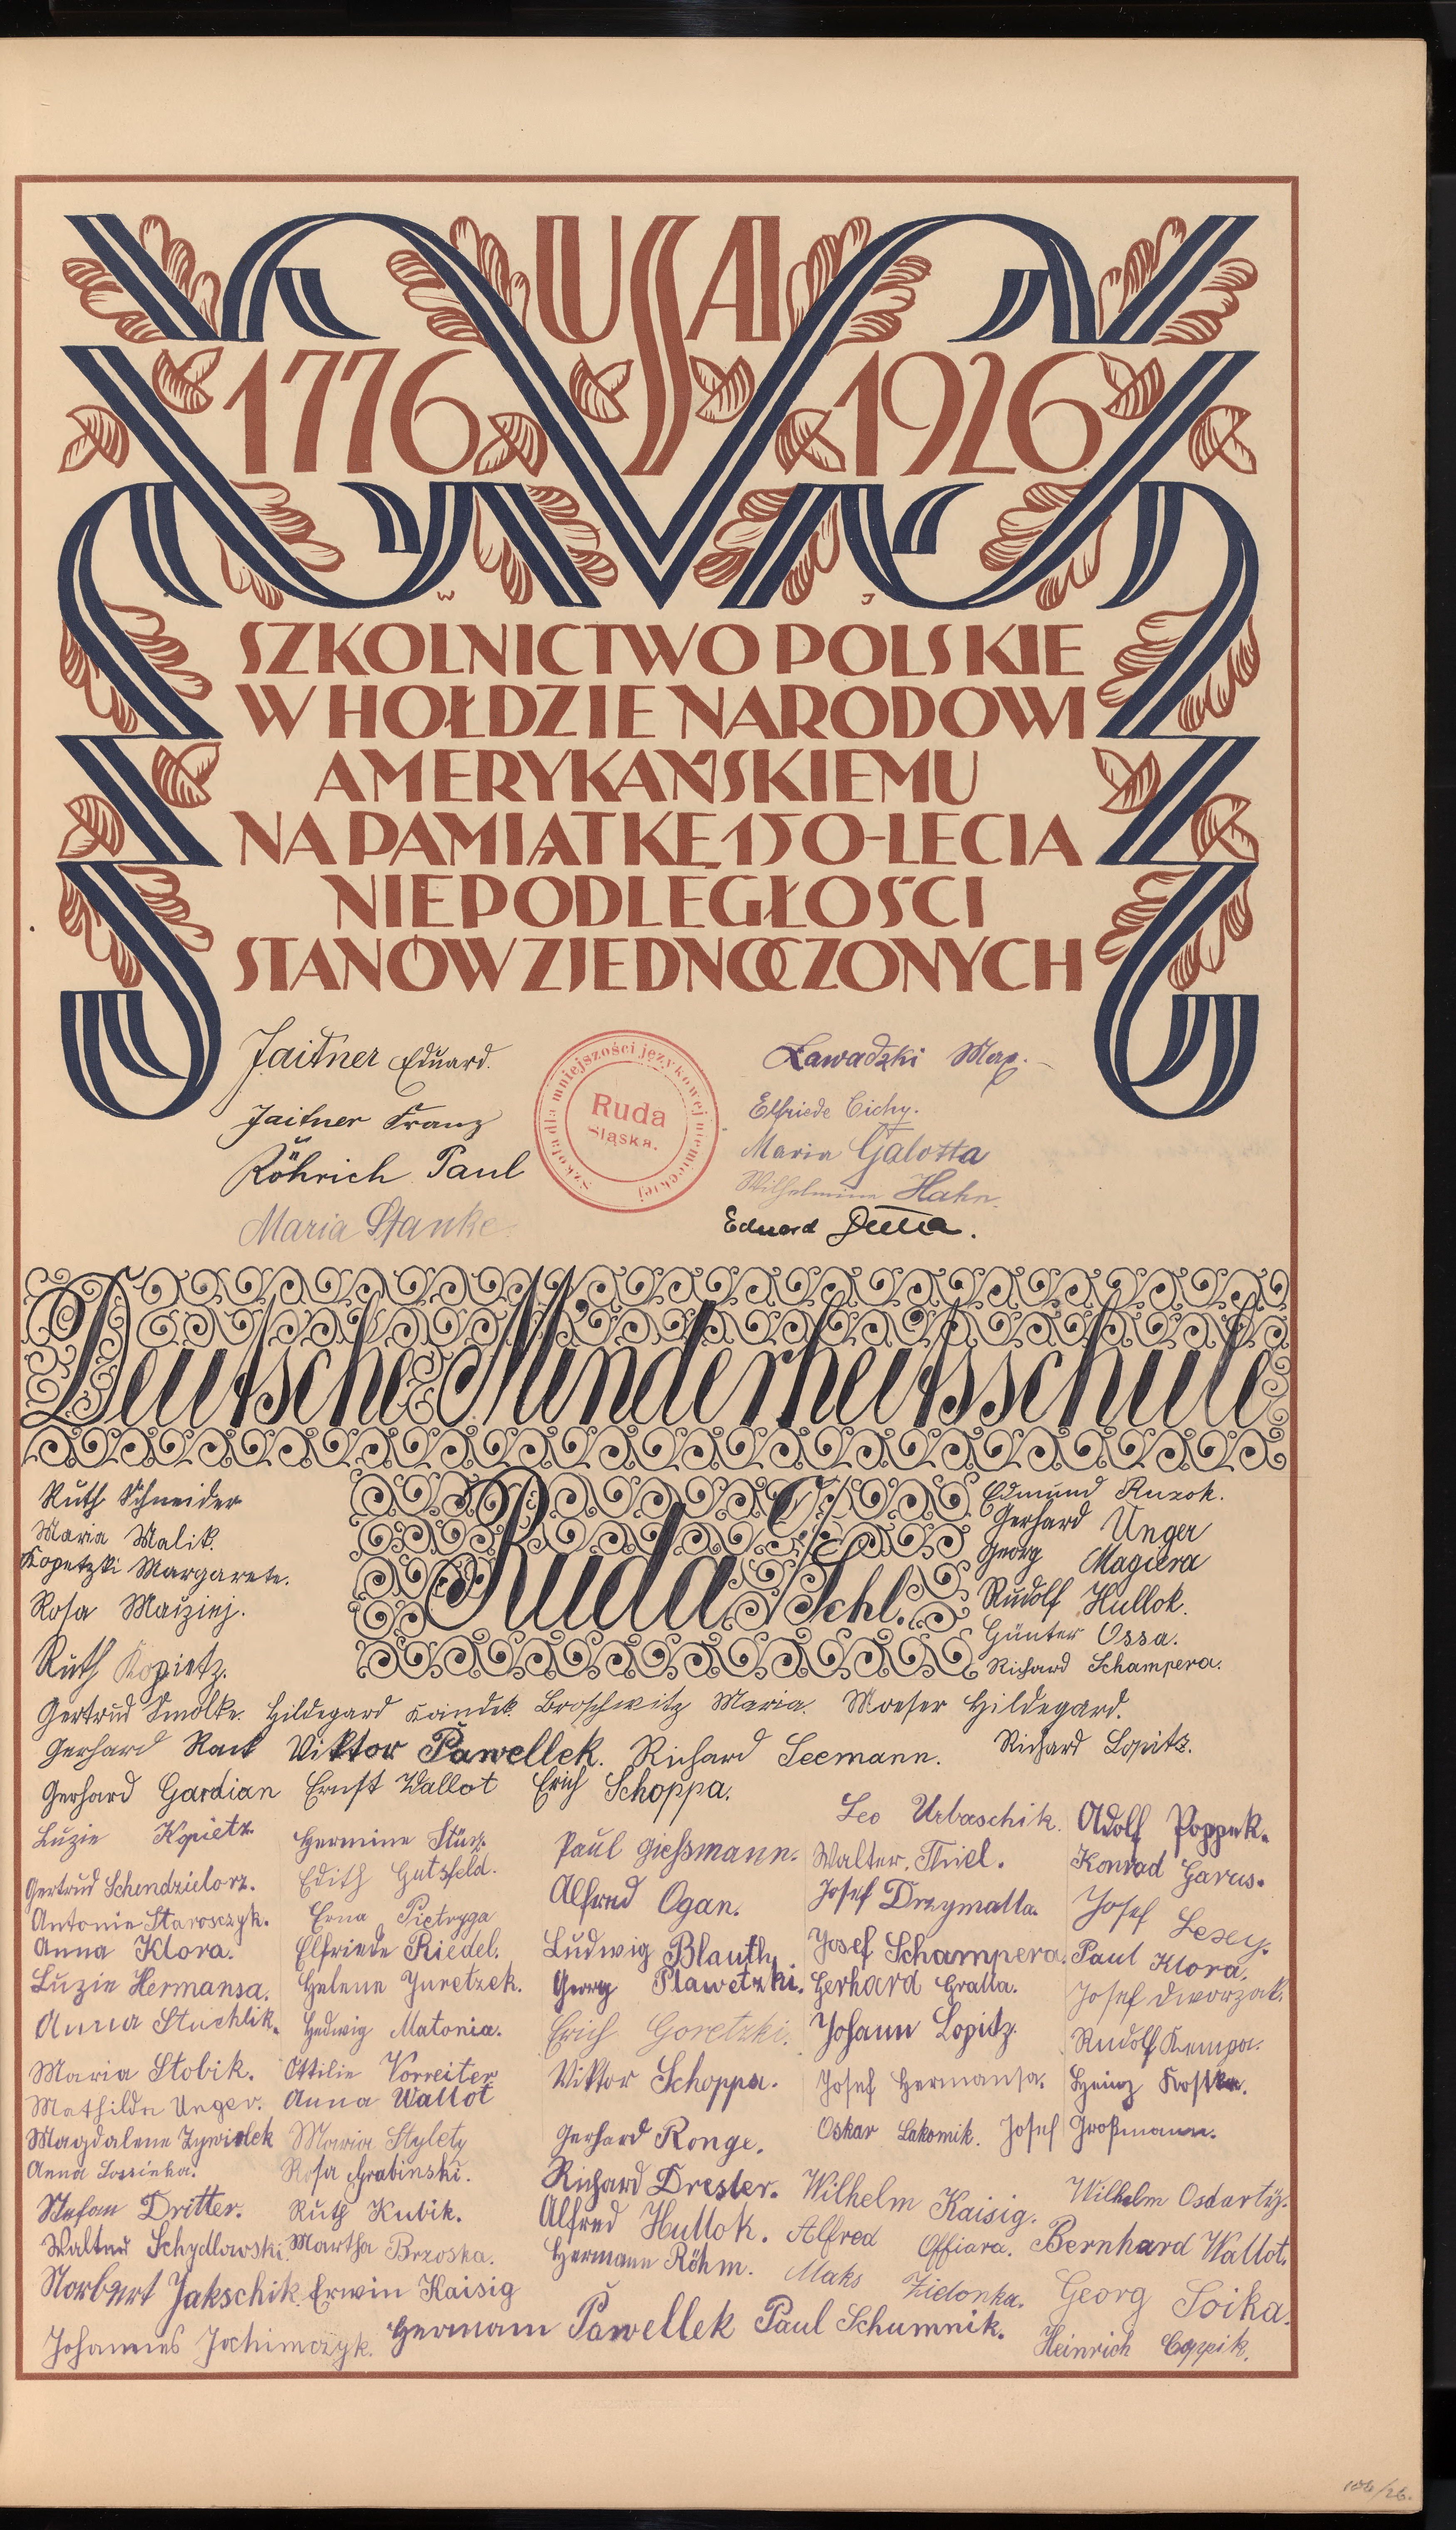 USA
1776 1926
W J
SZKOLNICTWO POLSKIE
W HOŁDZIE NARODOWI
AMERYKAŃSKIEMU
NA PAMIĄTKĘ 150-LECIA
NIEPODLEGŁOŚCI
STANÓW ZJEDNOCZONYCH
Jaitner Eduard.
Jaitner Franz
Röhrich Paul
Maria Stanke
Szkoła dla mniejszości językowej niemieckiej
Ruda
Śląska.
Zawadzki Max.
Elfriede Cichy.
Maria Galotta
Wilhelmine Hahn.
Eduard
Deutsche Minderheitsschule
Ruda O/Schl.
Ruth Schneider
Maria Malik.
Kopetzki Margarete.
Rosa Maiziej.
Ruth Kopietz.
Edmund Ruzok.
Gerhard Unger
Georg Magiera
Rudolf Hullok.
Günter Ossa.
Richard Schampera.
Gertrud Smolke. Hildegard Kandel. Broschwitz Maria. Moeser Hildegard.
Gerhard Rack Viktor Pawellek. Richard Seemann. Richard Lopitz.
Gerhard Gardian Ernst Wallot Erich Schoppa.
Luzie Kopietz
Gertrud Schendzielorz.
Antonie Starosczyk.
Anna Klora.
Luzie Hermansa.
Anna Stuchlik.
Maria Stobik.
Mathilde Unger.
Magdalene Zywiolek
Anna Lossinka.
Stefan Dritter.
Walter Schydlowski.
Norbert Jakschik.
Johannes Jochimczyk.
Hermine
Edith Gutsfeld.
Erna Pietryga
Elfriede Riedel.
Helene Juretzek.
Hedwig Matonia.
Ottilie Vorreiter
Anna Wallot
Maria Stylety
Rosa Grabinski.
Ruth Kubik.
Martha Brzoska.
Erwin Kaisig
Hermann Pawellek
Paul Gießmann.
Alfred Ogan.
Ludwig Blauth
Georg Plawetzki.
Erich Goretzki.
Viktor Schoppa.
Gerhard Ronge.
Richard Drester.
Alfred Hullok.
Hermann Röhm.
Paul Schumnik.
Leo Urbaschik.
Walter Thiel.
Josef Drzymalla.
Josef Schampera.
Gerhard Gralla.
Johann Lopitz.
Josef Hermansa.
Oskar Lakomik.
Wilhelm Kaisig.
Alfred Offiara.
Maks Zielonka.
Adolf Poppek.
Konrad Garus.
Josef Lesey.
Paul Klora.
Josef Dworzak.
Rudolf Kempa.
Heinz Kostka.
Josef Großmann.
Wilhelm Osdarty.
Bernhard Wallot.
Georg Soika.
Heinrich Czypik.
106/26.